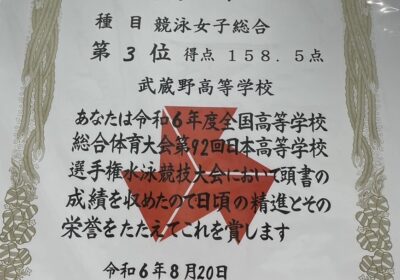 種目 競泳女子総合
第3位 得点 158.5点
武蔵野高等学校
あなたは令和6年度全国高等学校
総合体育大会第92回日本高等学校
選手権水泳競技大会において頭書の
成績を収めたので日頃の精進とその
栄誉をたたえてこれを賞します
令和6年8月20日